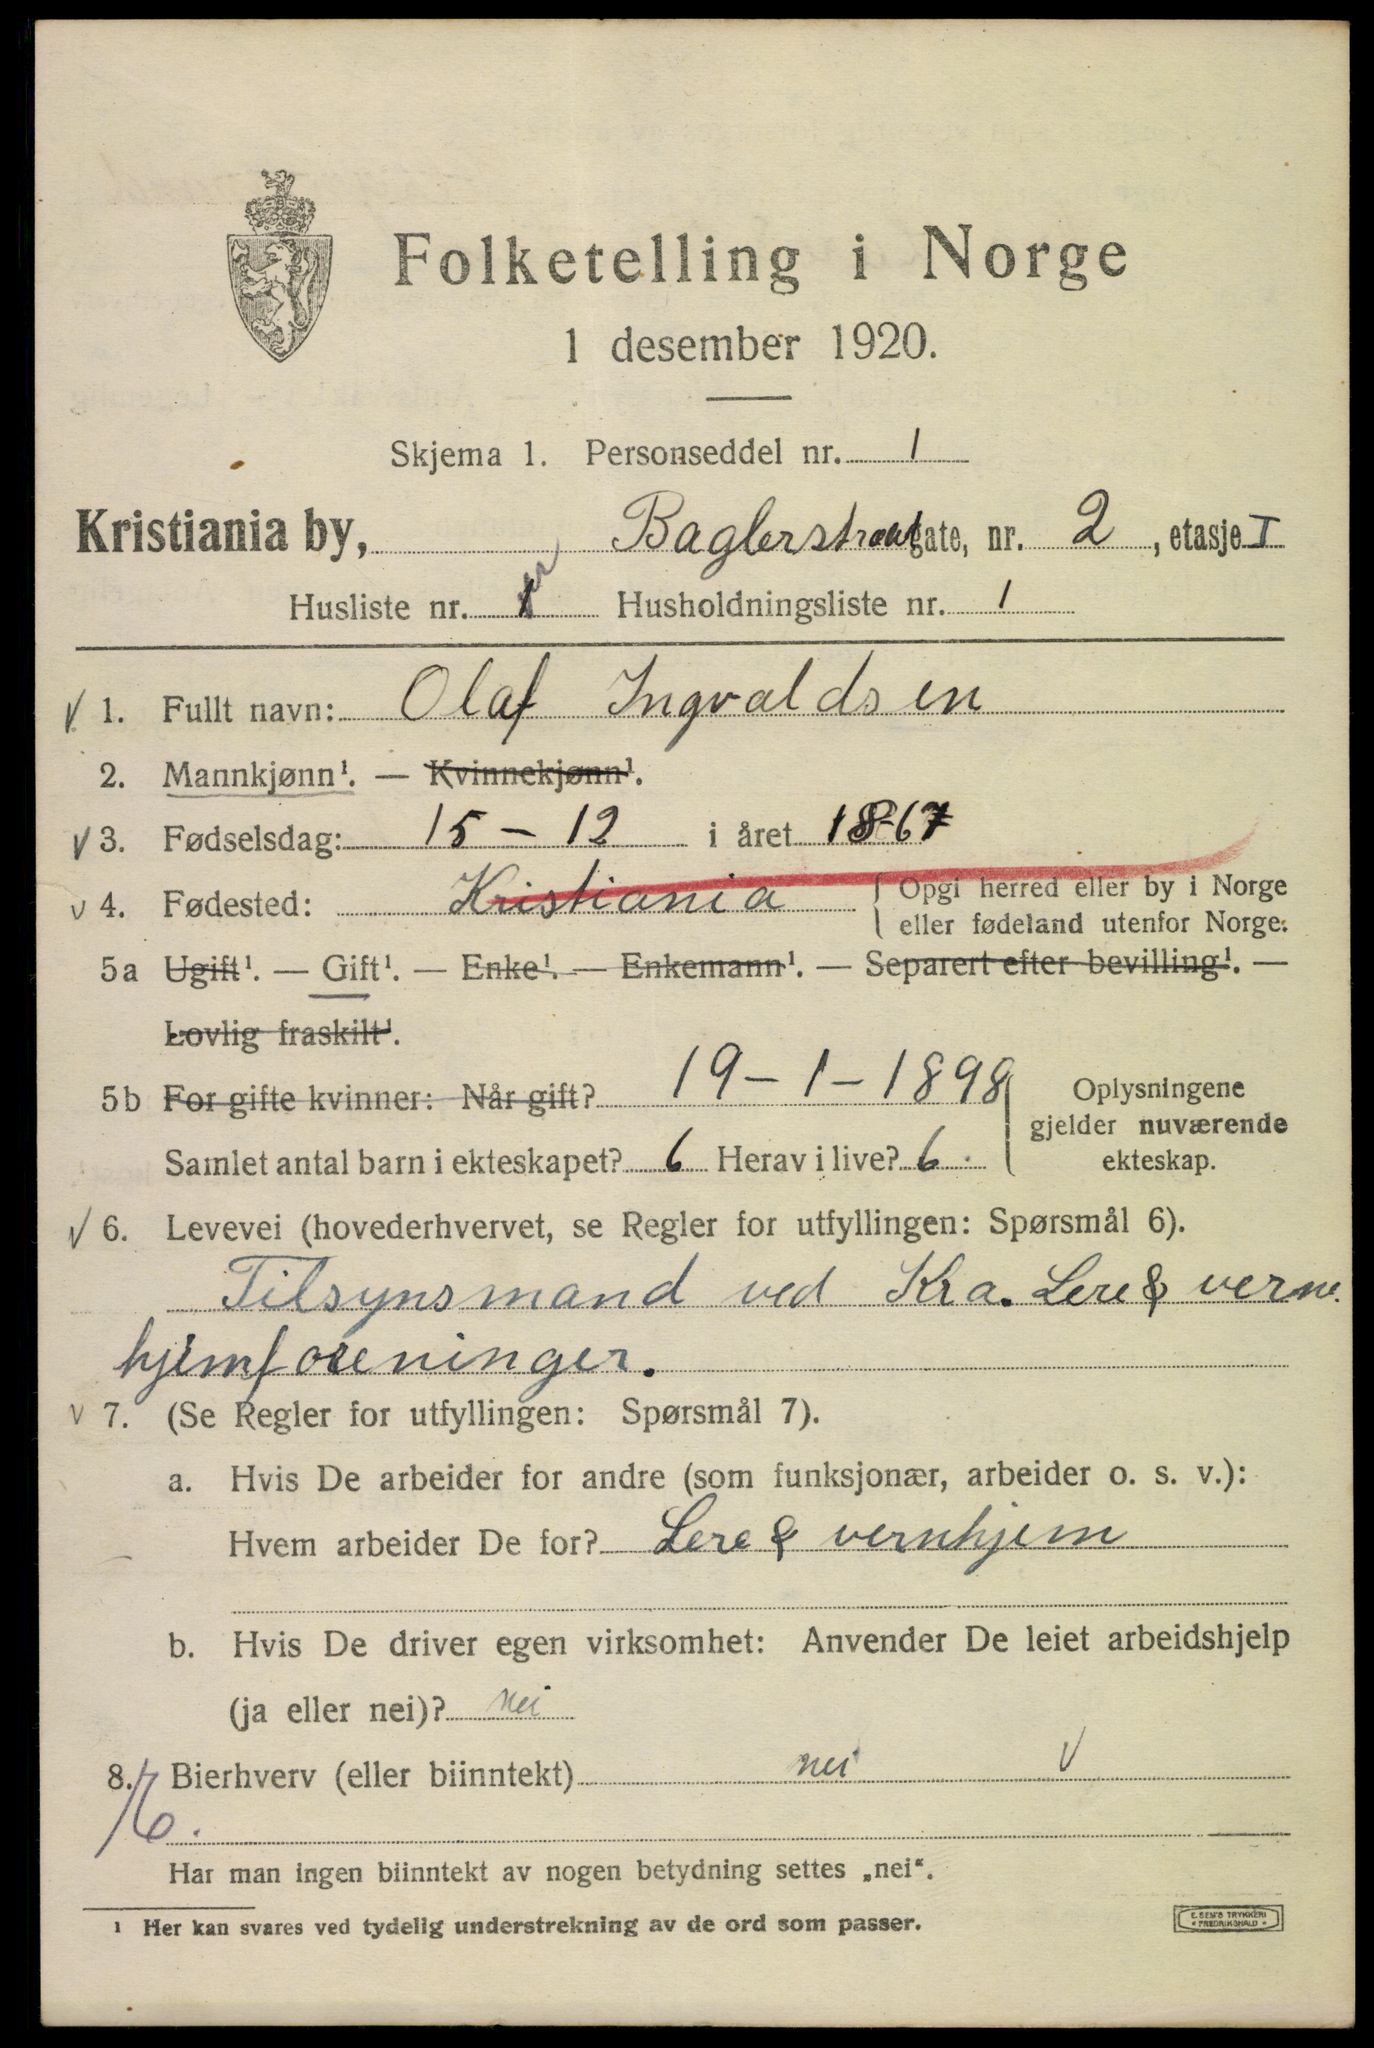 Folketelling i Norge
1 desember 1920.
Skjema 1. Personseddel nr. 1
Kristiania by, Baglerstrædet gate, nr. 2, etasje I
Husliste nr. 1 Husholdningsliste nr. 1
V 1. Fullt navn: Olaf Ingvaldsen
2. Mannkjønn¹. — Kvinnekjønn¹.
V 3. Fødselsdag: 15 – 12 i året 1867
V 4. Fødested: Kristiania { Opgi herred eller by i Norge
eller fødeland utenfor Norge.
5a Ugift¹. — Gift¹. — Enke¹. — Enkemann¹. — Separert efter bevilling¹. —
Lovlig fraskilt¹.
5b For gifte kvinner: Når gift? 19 – 1 – 1898 Oplysningene
gjelder nuværende
Samlet antal barn i ekteskapet? 6 Herav i live? 6. ekteskap.
V 6. Levevei (hovederhvervet, se Regler for utfyllingen: Spørsmål 6).
Tilsynsmand ved Kra. Lere & verne
hjemforeninger.
V 7. (Se Regler for utfyllingen: Spørsmål 7).
a. Hvis De arbeider for andre (som funksjonær, arbeider o. s. v.):
Hvem arbeider De for? Lere & vernhjem
b. Hvis De driver egen virksomhet: Anvender De leiet arbeidshjelp
(ja eller nei)? nei
8. Bierhverv (eller biinntekt) nei V
Har man ingen biinntekt av nogen betydning settes „nei“.
¹ Her kan svares ved tydelig understrekning av de ord som passer.
E. SEM'S TRYKKERI
* FREDRIKSHALD *